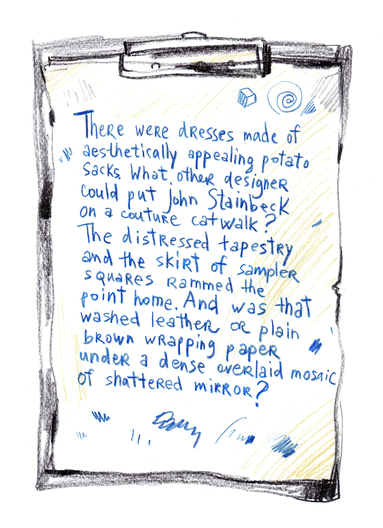 There were dresses made of
aesthetically appealing potato
sacks. What other designer
could put John Stainbeck
on a couture catwalk?
The distressed tapestry
and the skirt of sampler
squares rammed the
point home. And was that
washed leather or plain
brown wrapping paper
under a dense overlaid mosaic
of shattered mirror?